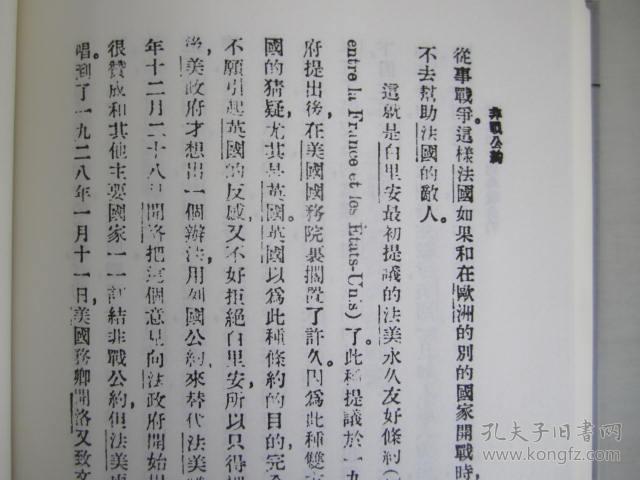 非戰公約
從事戰爭。這樣法國如果和在歐洲的別的國家開戰時,
不去幫助法國的敵人。
這就是白里安最初提議的法美永久友好條約(
entre la France et les États-Unis)了。此種提議於一九
府提出後,在美國國務院裏擱置了許久,因爲此種雙
國的猜疑,尤其是英國。英國以爲此種條約的目的完全
不願引起英國的反感,又不好拒絕白里安,所以只得
後,美政府才想出一個辦法,用列國公約來替代法美
年十二月二十八日,開洛把這個意見向法政府開始
很贊成和其他主要國家一一訂結非戰公約,但法美
唱到了一九二八年一月十一日,美國務卿開洛又致文
孔夫子旧书网